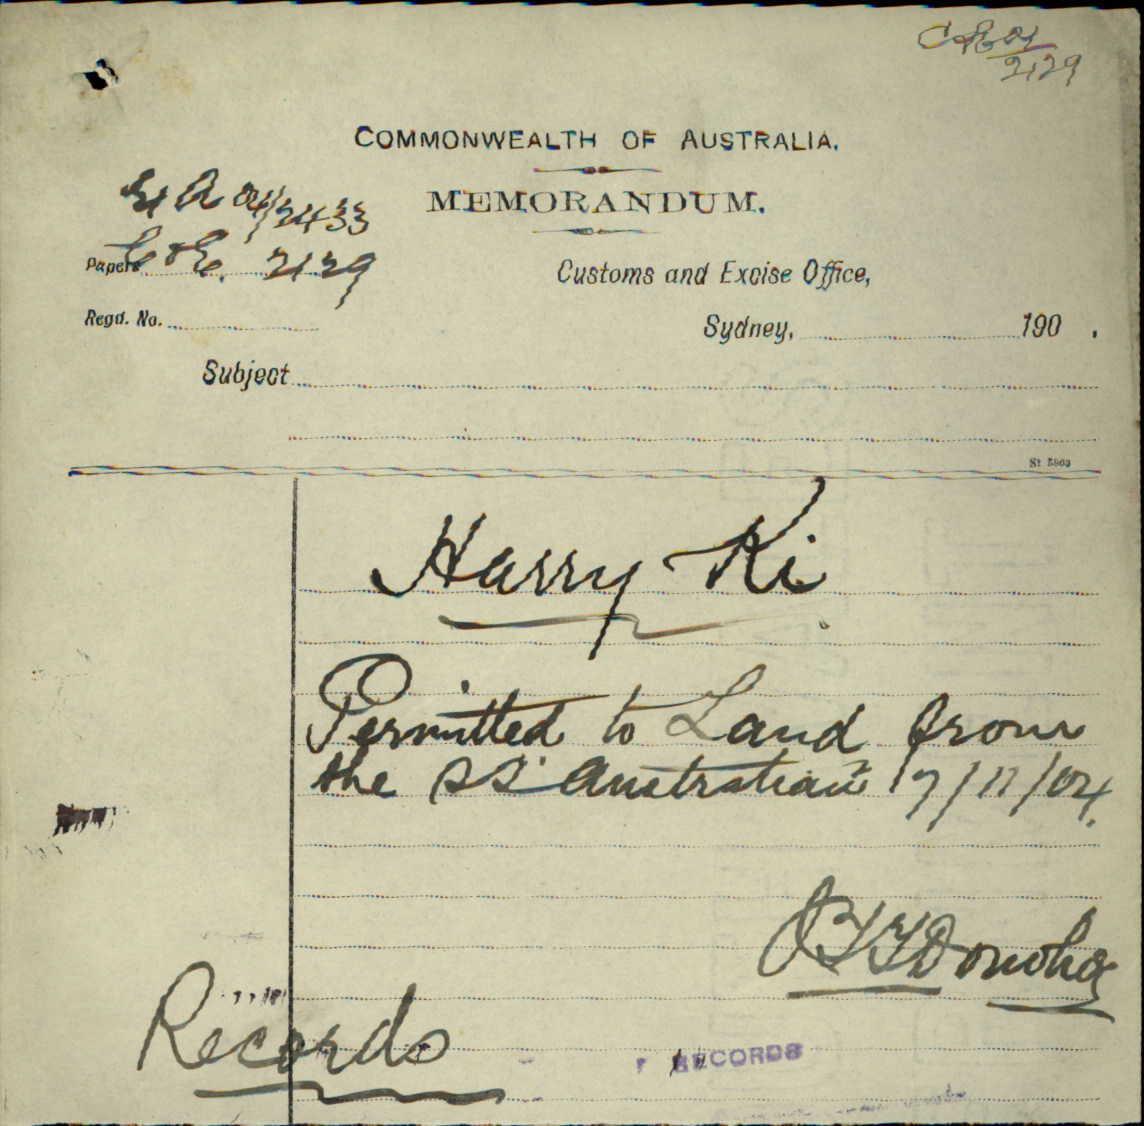 C & E 04
2129
COMMONWEALTH OF AUSTRALIA.
MEMORANDUM.
A 04/2433
Papers C & E. 2129
Customs and Excise Office,
Regd. No.
Sydney, 190 .
Subject
St 5863
Harry Ki
Permitted to Land from
the SS Australian 17/11/04.
Donohoe
Records
RECORDS